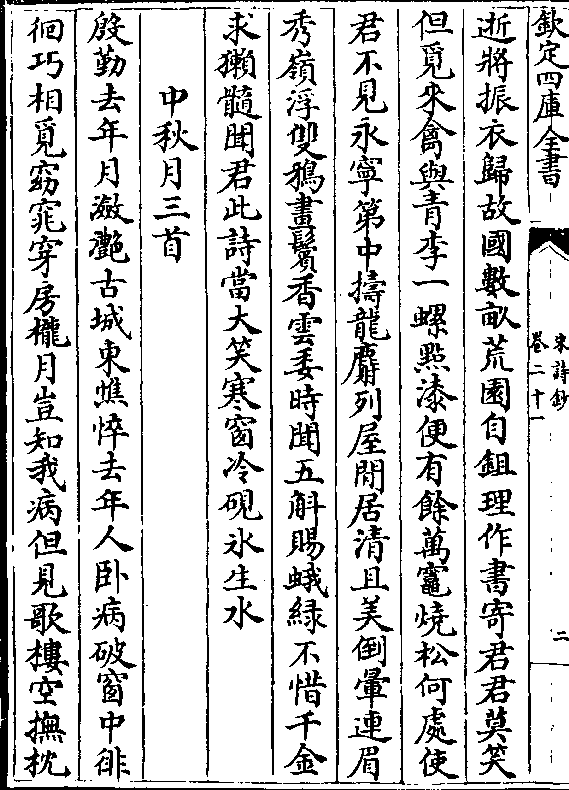 欽定四庫全書
宋詩鈔
卷二十一
二
逝將振衣歸故國數畝荒園自鉏理作書寄君君莫笑
但覓來禽與青李一螺點漆便有餘萬竈燒松何處使
君不見永寧第中擣龍麝列屋閒居清且美倒暈連眉
秀嶺浮雙鴉畫鬢香雲委時聞五斛賜蛾緑不惜千金
求獺髓聞君此詩當大笑寒窗冷硯氷生水
中秋月三首
殷勤去年月瀲灧古城東憔悴去年人卧病破窗中徘
徊巧相覓窈窕穿房櫳月豈知我病但見歌樓空撫枕